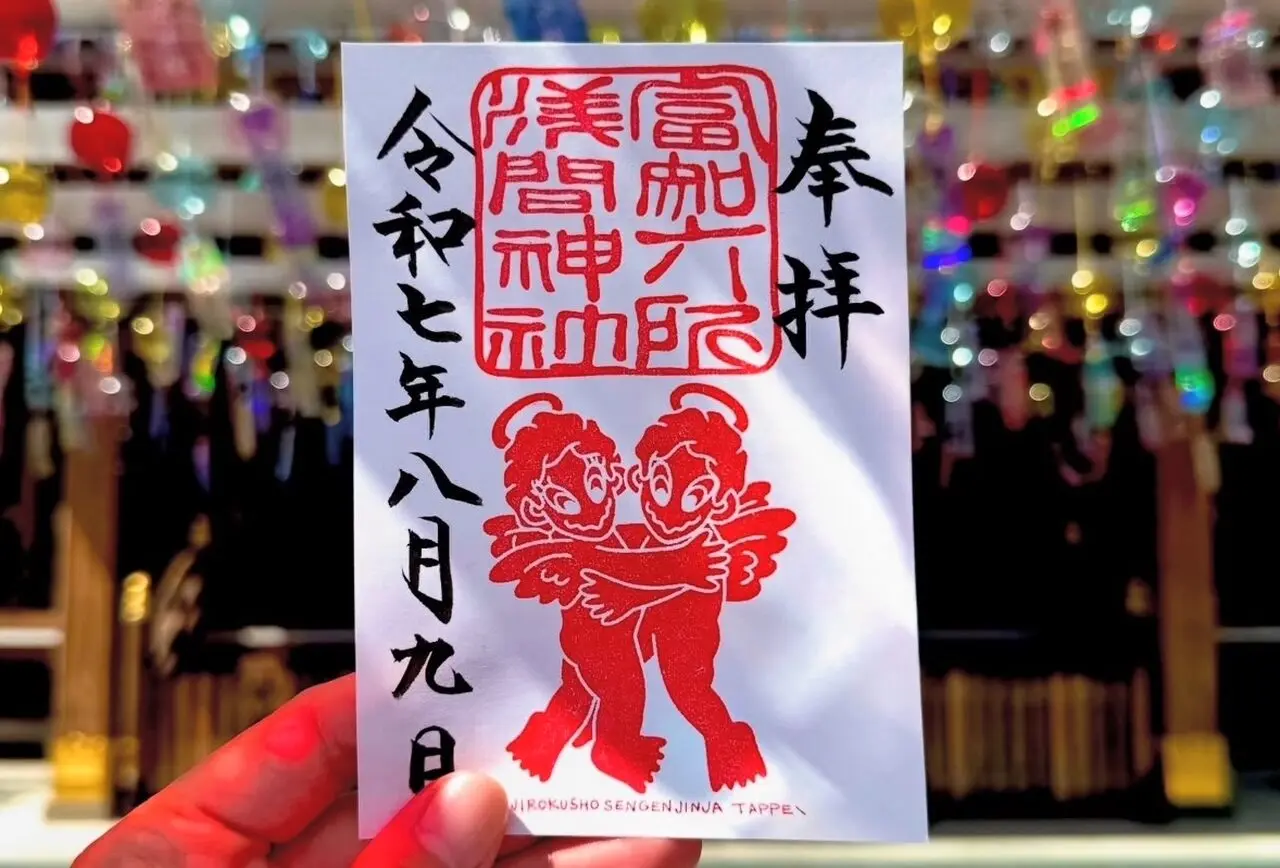 奉拝
富知六所
浅間神社
令和七年八月九日
JIROKUSHO SENGENJINJA TAPPEI